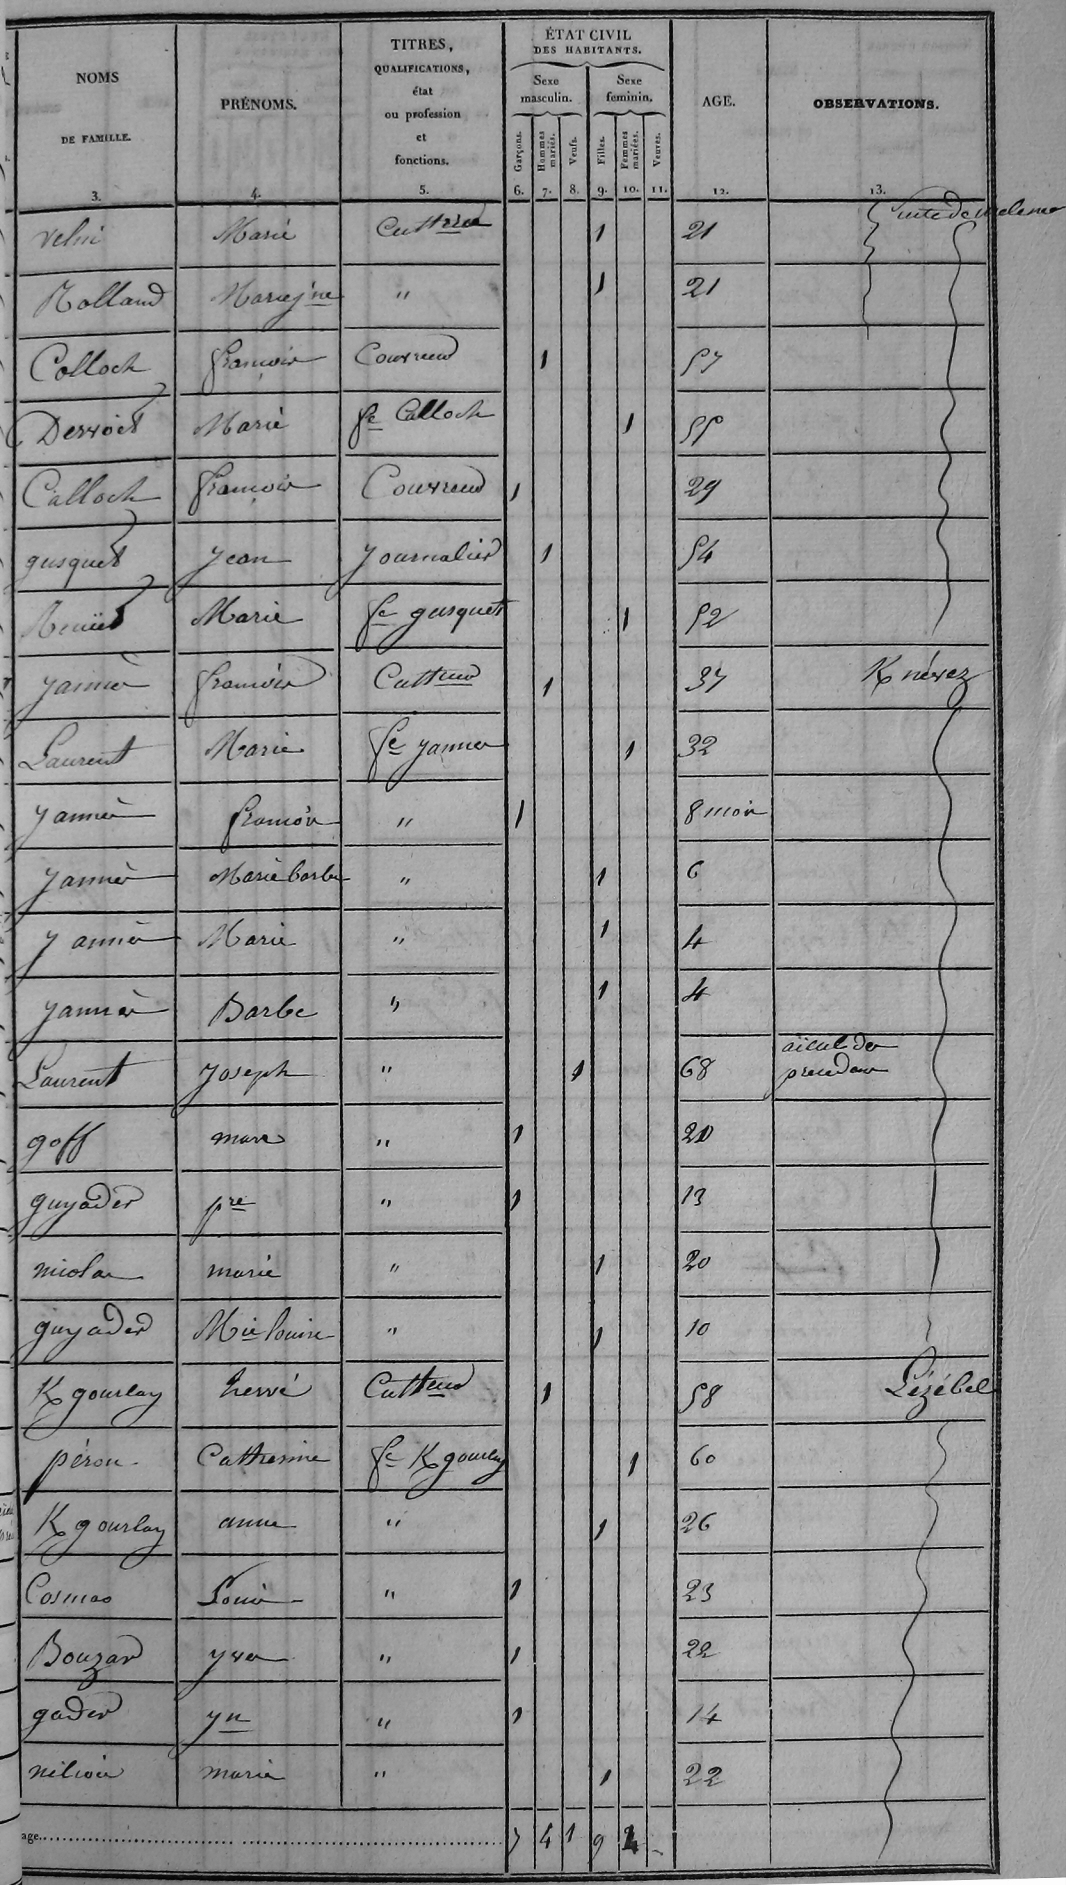 NOMS DE FAMILLE. PRÉNOMS. TITRES, QUALIFICATIONS, état ou profession et fonctions. ÉTAT CIVIL DES HABITANTS. Sexe masculin. Sexe feminin. Garçons. Hommes mariés. Veufs. Filles. Femmes mariées. Veuves. AGE. OBSERVATIONS.
3. 4. 5. 6. 7. 8. 9. 10. 11. 12. 13.
Marie 1 21 suite de
Rolland Marie jne " 1 21
Colloch françois Couvreur 1 57
Derroet Marie fe Calloch 1 55
Calloch françois Couvreur 1 29
gusquet jean journalier 1 54
Marie fe gusquet 1 52
yannès françois Cultteur 1 37 K névez
Laurent Marie fe yannes 1 32
yannès françois " 1 8 mois
yannès Marie barbe " 1 6
yannès Marie " 1 4
yannès Barbe " 1 4
Laurent joseph " 1 68 aïeul des
goff marc " 1 20
guyader pre " 1 13
nicolas marie " 1 20
guyader Mie louise " 1 10
K gourlay hervé Cultteur 1 58 Lézébel
péron Catherine fe K gourlay 1 60
K gourlay anne " 1 26
Cosmao Louis " 1 23
Bouzar yves " 1 22
gader yn " 1 14
marie " 1 22
age 7 4 1 9 4 -